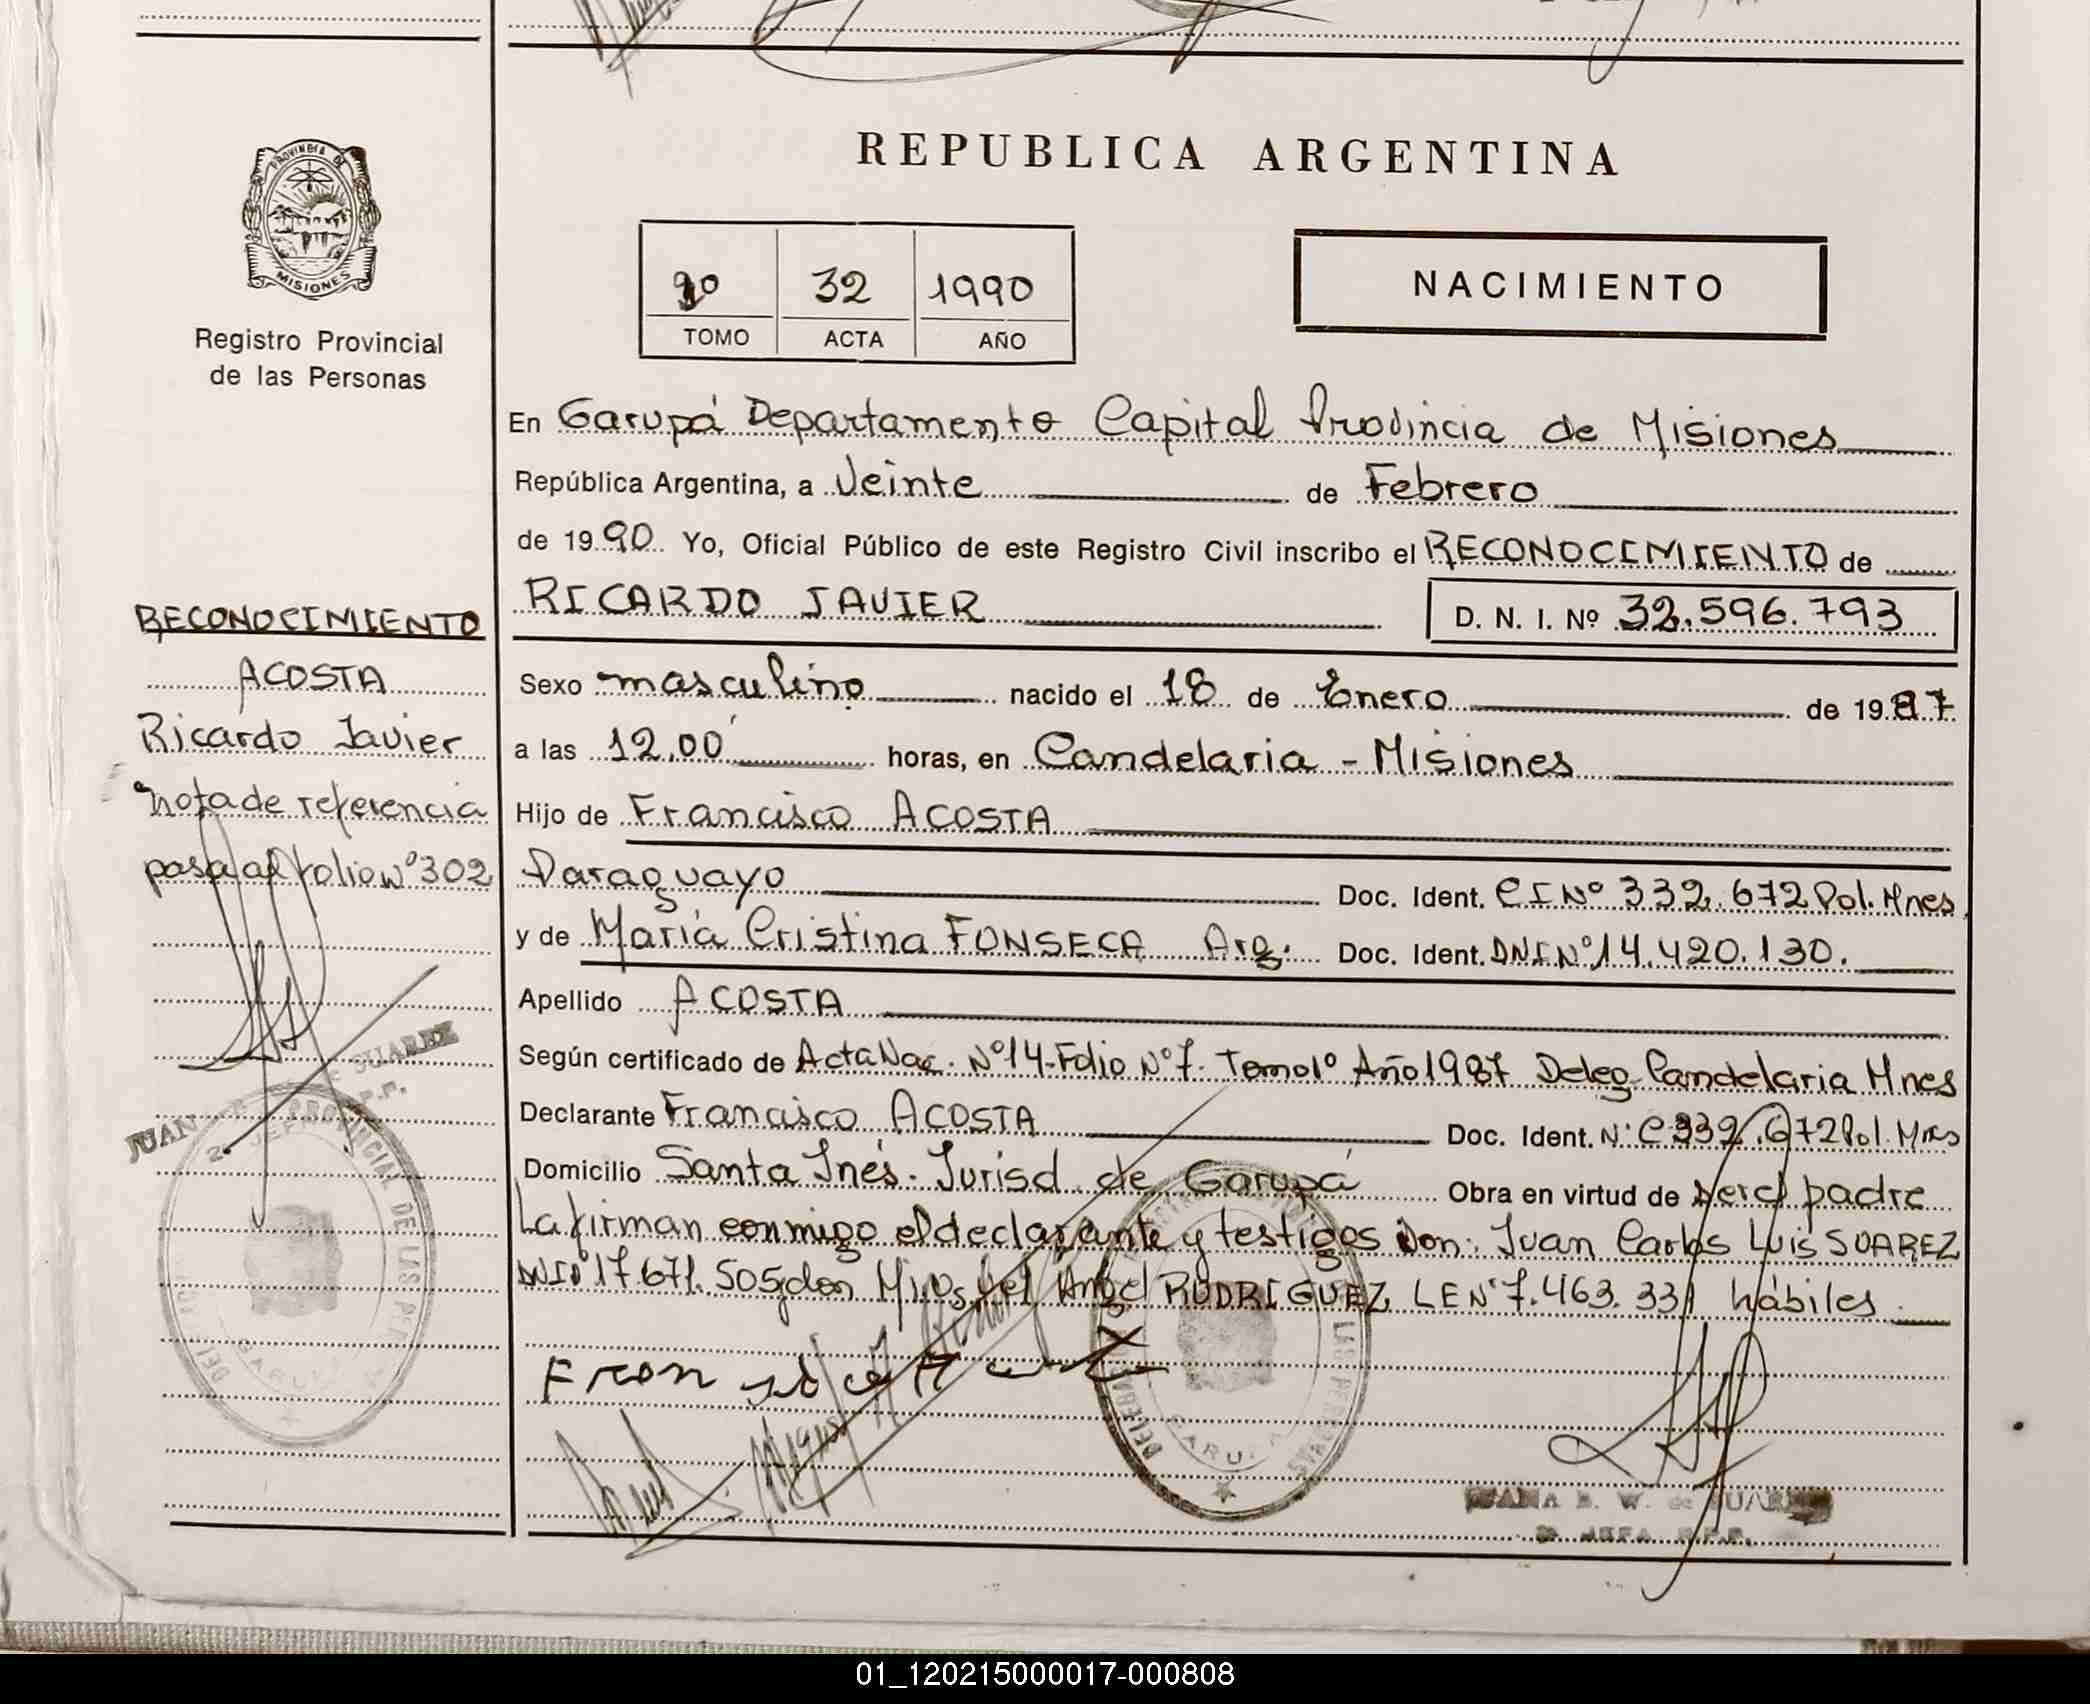 PROVINCIA DE
MISIONES
Registro Provincial
de las Personas
RECONOCIMIENTO
ACOSTA
Ricardo Javier
nota de referencia
pasa al folio nº 302
REPUBLICA ARGENTINA
32 1990
TOMO ACTA AÑO
NACIMIENTO
En Garupá Departamento Capital Provincia de Misiones
República Argentina, a Veinte de Febrero
de 1990 Yo, Oficial Público de este Registro Civil inscribo el RECONOCIMIENTO de
RICARDO JAVIER D. N. I. Nº 32.596.793
Sexo masculino nacido el 18 de Enero de 1987
a las 12,00 horas, en Candelaria - Misiones
Hijo de Francisco ACOSTA
Paraguayo Doc. Ident. CI Nº 332.672 Pol. Mnes
y de María Cristina FONSECA Arg. Doc. Ident. DNI Nº 14.420.130.
Apellido ACOSTA
Según certificado de Acta Nac. Nº 14-Folio Nº 7. Tomo 1º Año 1987 Deleg. Candelaria Mnes
Declarante Francisco ACOSTA Doc. Ident. Nº C 332.672 Pol. Mnes
Domicilio Santa Inés. Jurisd. de Garupá Obra en virtud de ser el padre
La firman conmigo el declarante y testigos Don: Juan Carlos Luis SUAREZ
DNI Nº 17.671.505 y don Miguel Angel RODRIGUEZ LE Nº 7.463.331 hábiles.
JUANA E. W. de SUAREZ
2ª JEFA R.P.P.
01_120215000017-000808